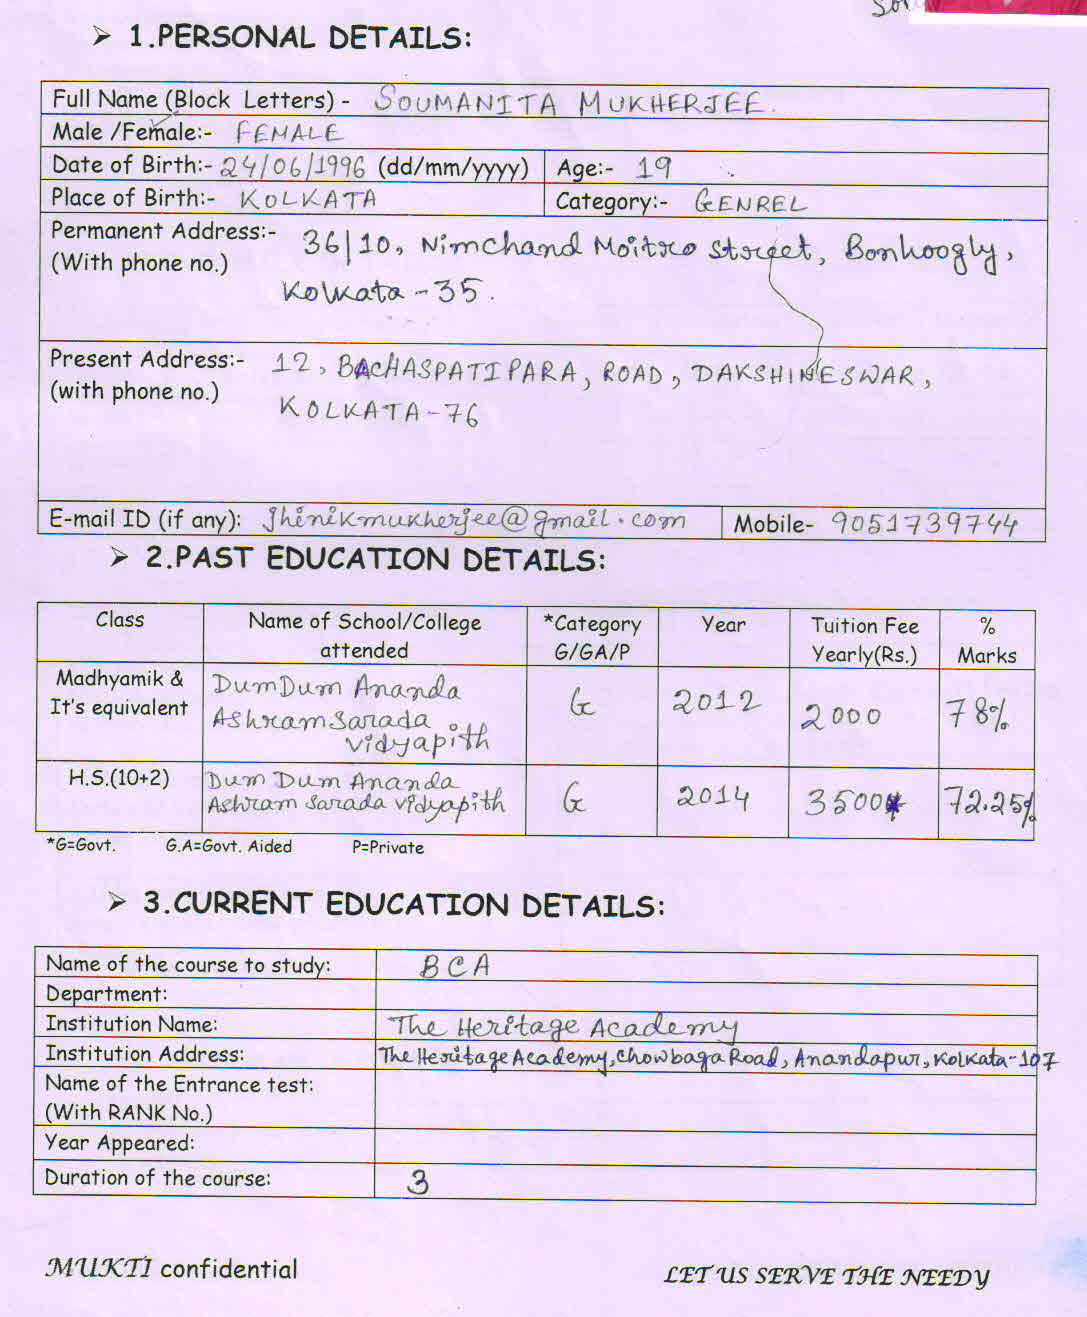 ➢ 1.PERSONAL DETAILS:
Full Name (Block Letters) - SOUMANITA MUKHERJEE.
Male /Female:- FEMALE
Date of Birth:- 24/06/1996 (dd/mm/yyyy) Age:- 19
Place of Birth:- KOLKATA Category:- GENREL
Permanent Address:- 36/10, Nimchand Moitro Street, Bonhoogly,
(With phone no.)
Kolkata - 35.
Present Address:- 12, BACHASPATIPARA, ROAD, DAKSHINESWAR,
(with phone no.)
KOLKATA-76
E-mail ID (if any): jhinikmukherjee@gmail.com Mobile- 9051739744
➢ 2.PAST EDUCATION DETAILS:
Class Name of School/College *Category Year Tuition Fee %
attended G/GA/P Yearly(Rs.) Marks
Madhyamik & DumDum Ananda G 2012 2000 78%
It's equivalent Ashram Sarada
Vidyapith
H.S.(10+2) Dum Dum Ananda G 2014 3500 72.25%
Ashram Sarada Vidyapith
*G=Govt. G.A=Govt. Aided P=Private
➢ 3.CURRENT EDUCATION DETAILS:
Name of the course to study: BCA
Department:
Institution Name: The Heritage Academy
Institution Address: The Heritage Academy, Chowbaga Road, Anandapur, Kolkata-107
Name of the Entrance test:
(With RANK No.)
Year Appeared:
Duration of the course: 3
MUKTI confidential LET US SERVE THE NEEDY